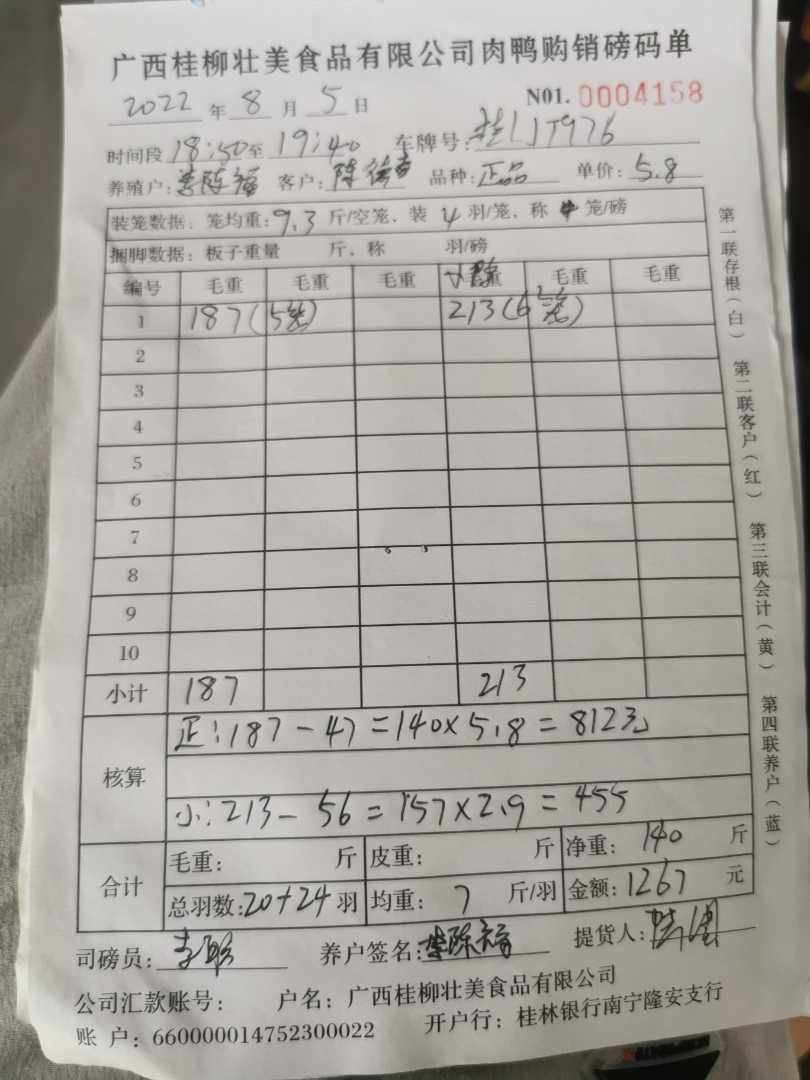 广西桂柳壮美食品有限公司肉鸭购销磅码单
2022 年 8 月 5 日 N01. 0004158
时间段 18:50 至 19:40 车牌号: 桂LJT976
养殖户: 李陈福 客户: 陈 品种: 正品 单价: 5.8
装笼数据: 笼均重: 9.3 斤/空笼、装 4 羽/笼、称 笼/磅
捆脚数据: 板子重量 斤、称 羽/磅
编号 毛重 毛重 毛重 毛重 毛重
1 187(5笼) 213(6笼)
2
3
4
5
6
7
8
9
10
小计 187 213
核算 正:187-47=140×5.8=812元
小:213-56=157×2.9=455
合计 毛重: 斤 皮重: 斤 净重: 140 斤
总羽数: 20+24 羽 均重: 7 斤/羽 金额: 1267 元
司磅员: 李 养户签名: 李陈福 提货人:
公司汇款账号: 户名: 广西桂柳壮美食品有限公司
账 户: 660000014752300022 开户行: 桂林银行南宁隆安支行
第一联存根(白) 第二联客户(红) 第三联会计(黄) 第四联养户(蓝)